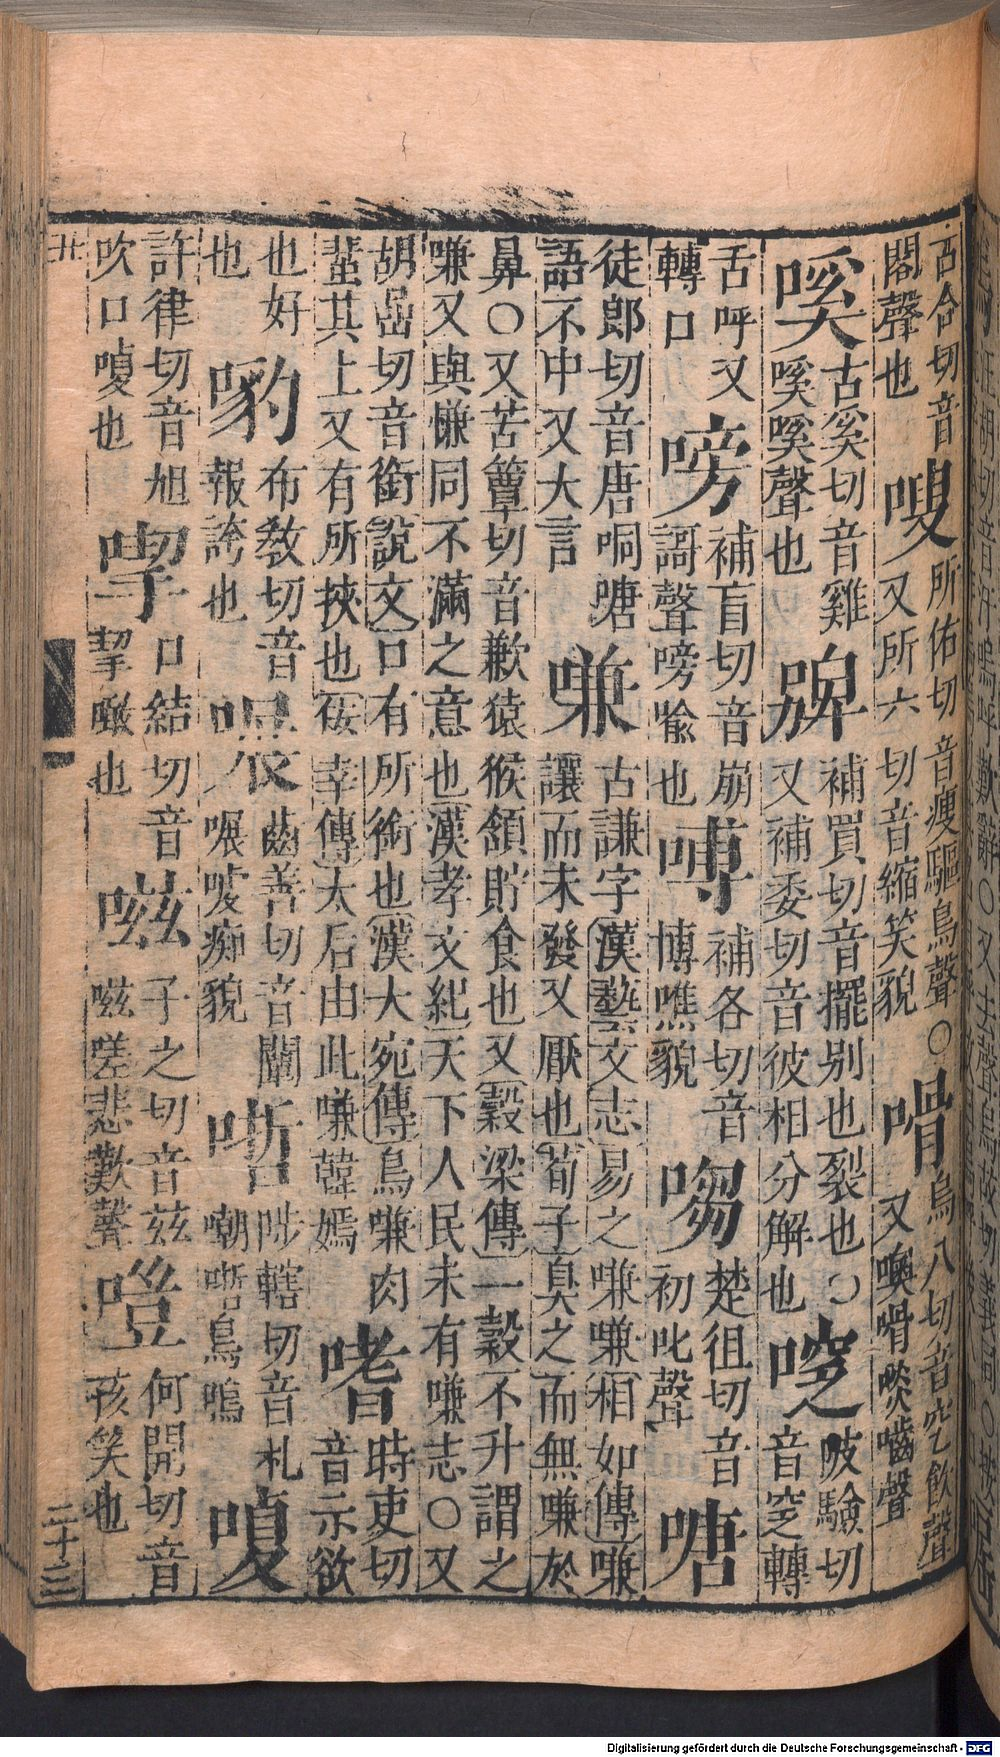 古合切音
閤聲也
嗖
所佑切音瘦驅鳥聲○
又所六切音縮笑貌
嗗
烏八切音穵飲聲
又噢嗗㗖嚙聲
嗘
古奚切音雞
嗘嗘聲也
𡂖
補買切音擺别也裂也○
又補委切音彼相分解也
陂驗切
音窆轉
舌呼又
轉口
嗙
補盲切音崩
謌聲嗙喻也
嗙
補各切音
博噍貌
㗙
楚徂切音
初叱聲
嗙
徒郎切音唐哃嗙
語不中又大言
嗛
古謙字漢藝文志易之嗛嗛相如傳嗛
讓而未發又厭也荀子臭之而無嗛於
鼻○又苦簟切音歉猿猴頷貯食也又穀梁傳一穀不升謂之
嗛又與慊同不滿之意也漢孝文紀天下人民未有嗛志○又
胡嵒切音銜說文口有所銜也漢大宛傳烏嗛肉
蜚其上又有所挾也佞幸傳太后由此嗛韓嫣
嗜
時吏切
音示欲
也好
也
布敎切音
報誇也
齒善切音闡
㖠㖠痴貌
陟轄切音札
嘲哳鳥鳴
嗅
許律切音旭
吹口嗅也
口結切音
挈噉也
嗞
子之切音兹
嗞嗟悲歎聲
何開切音
孩笑也
丑
二十三
Digitalisierung gefördert durch die Deutsche Forschungsgemeinschaft - DFG